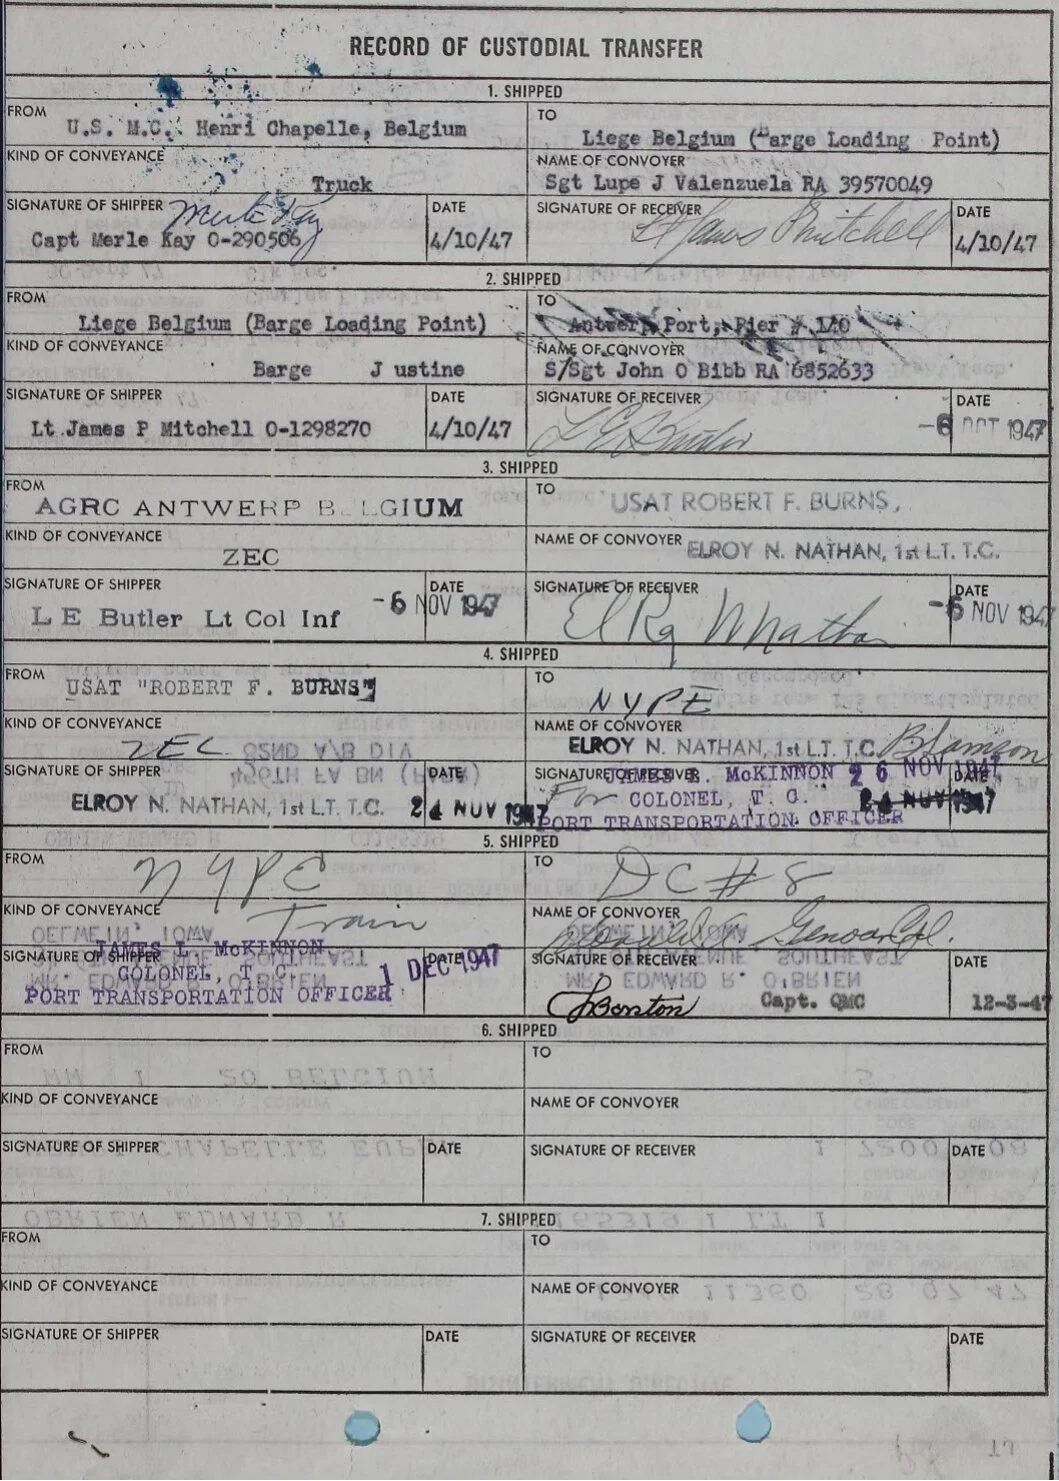 RECORD OF CUSTODIAL TRANSFER
1. SHIPPED
FROM
U.S. M.C. Henri Chapelle, Belgium
TO
Liege Belgium (Barge Loading Point)
KIND OF CONVEYANCE
Truck
NAME OF CONVOYER
Sgt Lupe J Valenzuela RA 39570049
SIGNATURE OF SHIPPER
Merle Kay
Capt Merle Kay O-290506
DATE
4/10/47
SIGNATURE OF RECEIVER
Lt James P Mitchell
DATE
4/10/47
2. SHIPPED
FROM
Liege Belgium (Barge Loading Point)
TO
Antwerp Port, Pier # 140
KIND OF CONVEYANCE
Barge J ustine
NAME OF CONVOYER
S/Sgt John O Bibb RA 6852633
SIGNATURE OF SHIPPER
Lt James P Mitchell O-1298270
DATE
4/10/47
SIGNATURE OF RECEIVER
L E Butler
DATE
-6 OCT 1947
3. SHIPPED
FROM
AGRC ANTWERP B LGIUM
TO
USAT ROBERT F. BURNS,
KIND OF CONVEYANCE
ZEC
NAME OF CONVOYER
ELROY N. NATHAN, 1st LT. T.C.
SIGNATURE OF SHIPPER
L E Butler Lt Col Inf
DATE
-6 NOV 1947
SIGNATURE OF RECEIVER
ElRoy N Nathan
DATE
-6 NOV 1947
4. SHIPPED
FROM
USAT "ROBERT F. BURNS"
TO
NYPE
KIND OF CONVEYANCE
ZEC
NAME OF CONVOYER
ELROY N. NATHAN, 1st LT. T.C. B Samson
SIGNATURE OF SHIPPER
ELROY N. NATHAN, 1st LT. T.C.
DATE
24 NOV 1947
SIGNATURE OF RECEIVER
JAMES L. McKINNON
For COLONEL, T. C.
PORT TRANSPORTATION OFFICER
DATE
26 NOV 1947
24 NOV 1947
5. SHIPPED
FROM
NYPE
TO
DC #8
KIND OF CONVEYANCE
Train
NAME OF CONVOYER
SIGNATURE OF SHIPPER
JAMES L. McKINNON
COLONEL, T. C.
PORT TRANSPORTATION OFFICER
DATE
1 DEC 1947
SIGNATURE OF RECEIVER
Capt. QMC
DATE
12-3-47
6. SHIPPED
FROM
TO
KIND OF CONVEYANCE
NAME OF CONVOYER
SIGNATURE OF SHIPPER
DATE
SIGNATURE OF RECEIVER
DATE
7. SHIPPED
FROM
TO
KIND OF CONVEYANCE
NAME OF CONVOYER
SIGNATURE OF SHIPPER
DATE
SIGNATURE OF RECEIVER
DATE